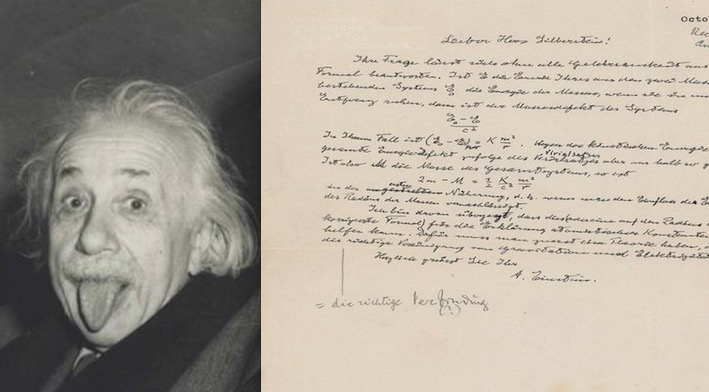 Octo
Lieber Herr Silberstein!
Ihre Frage lässt sich ohne alle Gelehrsamkeit aus
Formel beantworten. Ist E die Energie Ihres aus den zwei Mass
bestehenden Systems E₀ die Energie der Massen, wenn sie
Entfernung stehen, dann ist der Massendefekt des Systems
E₀ - E
c²
In Ihrem Fall ist (E₀ - E) = K m²/r. Wegen der kinetischen Energie
gesamte Energiedefekt zufolge des Virialsatzes aber nur halb so g
Ist also M die Masse des Gesamtsystems, so ist
2m - M = ½ K/c² m²/r
in der ersten Näherung, d. h. wenn man den Einfluss der E
den Radius der Massen vernachlässigt.
Ich bin davon überzeugt, dass
Formel) für die Erklärung atomistischer Konstanten
helfen kann. Dafür muss man zuerst eine Theorie haben,
die richtige Vereinigung von Gravitation und Elektrizität
Herzlich grüsst Sie Ihr
A. Einstein.
= die richtige Verbindung
(?)